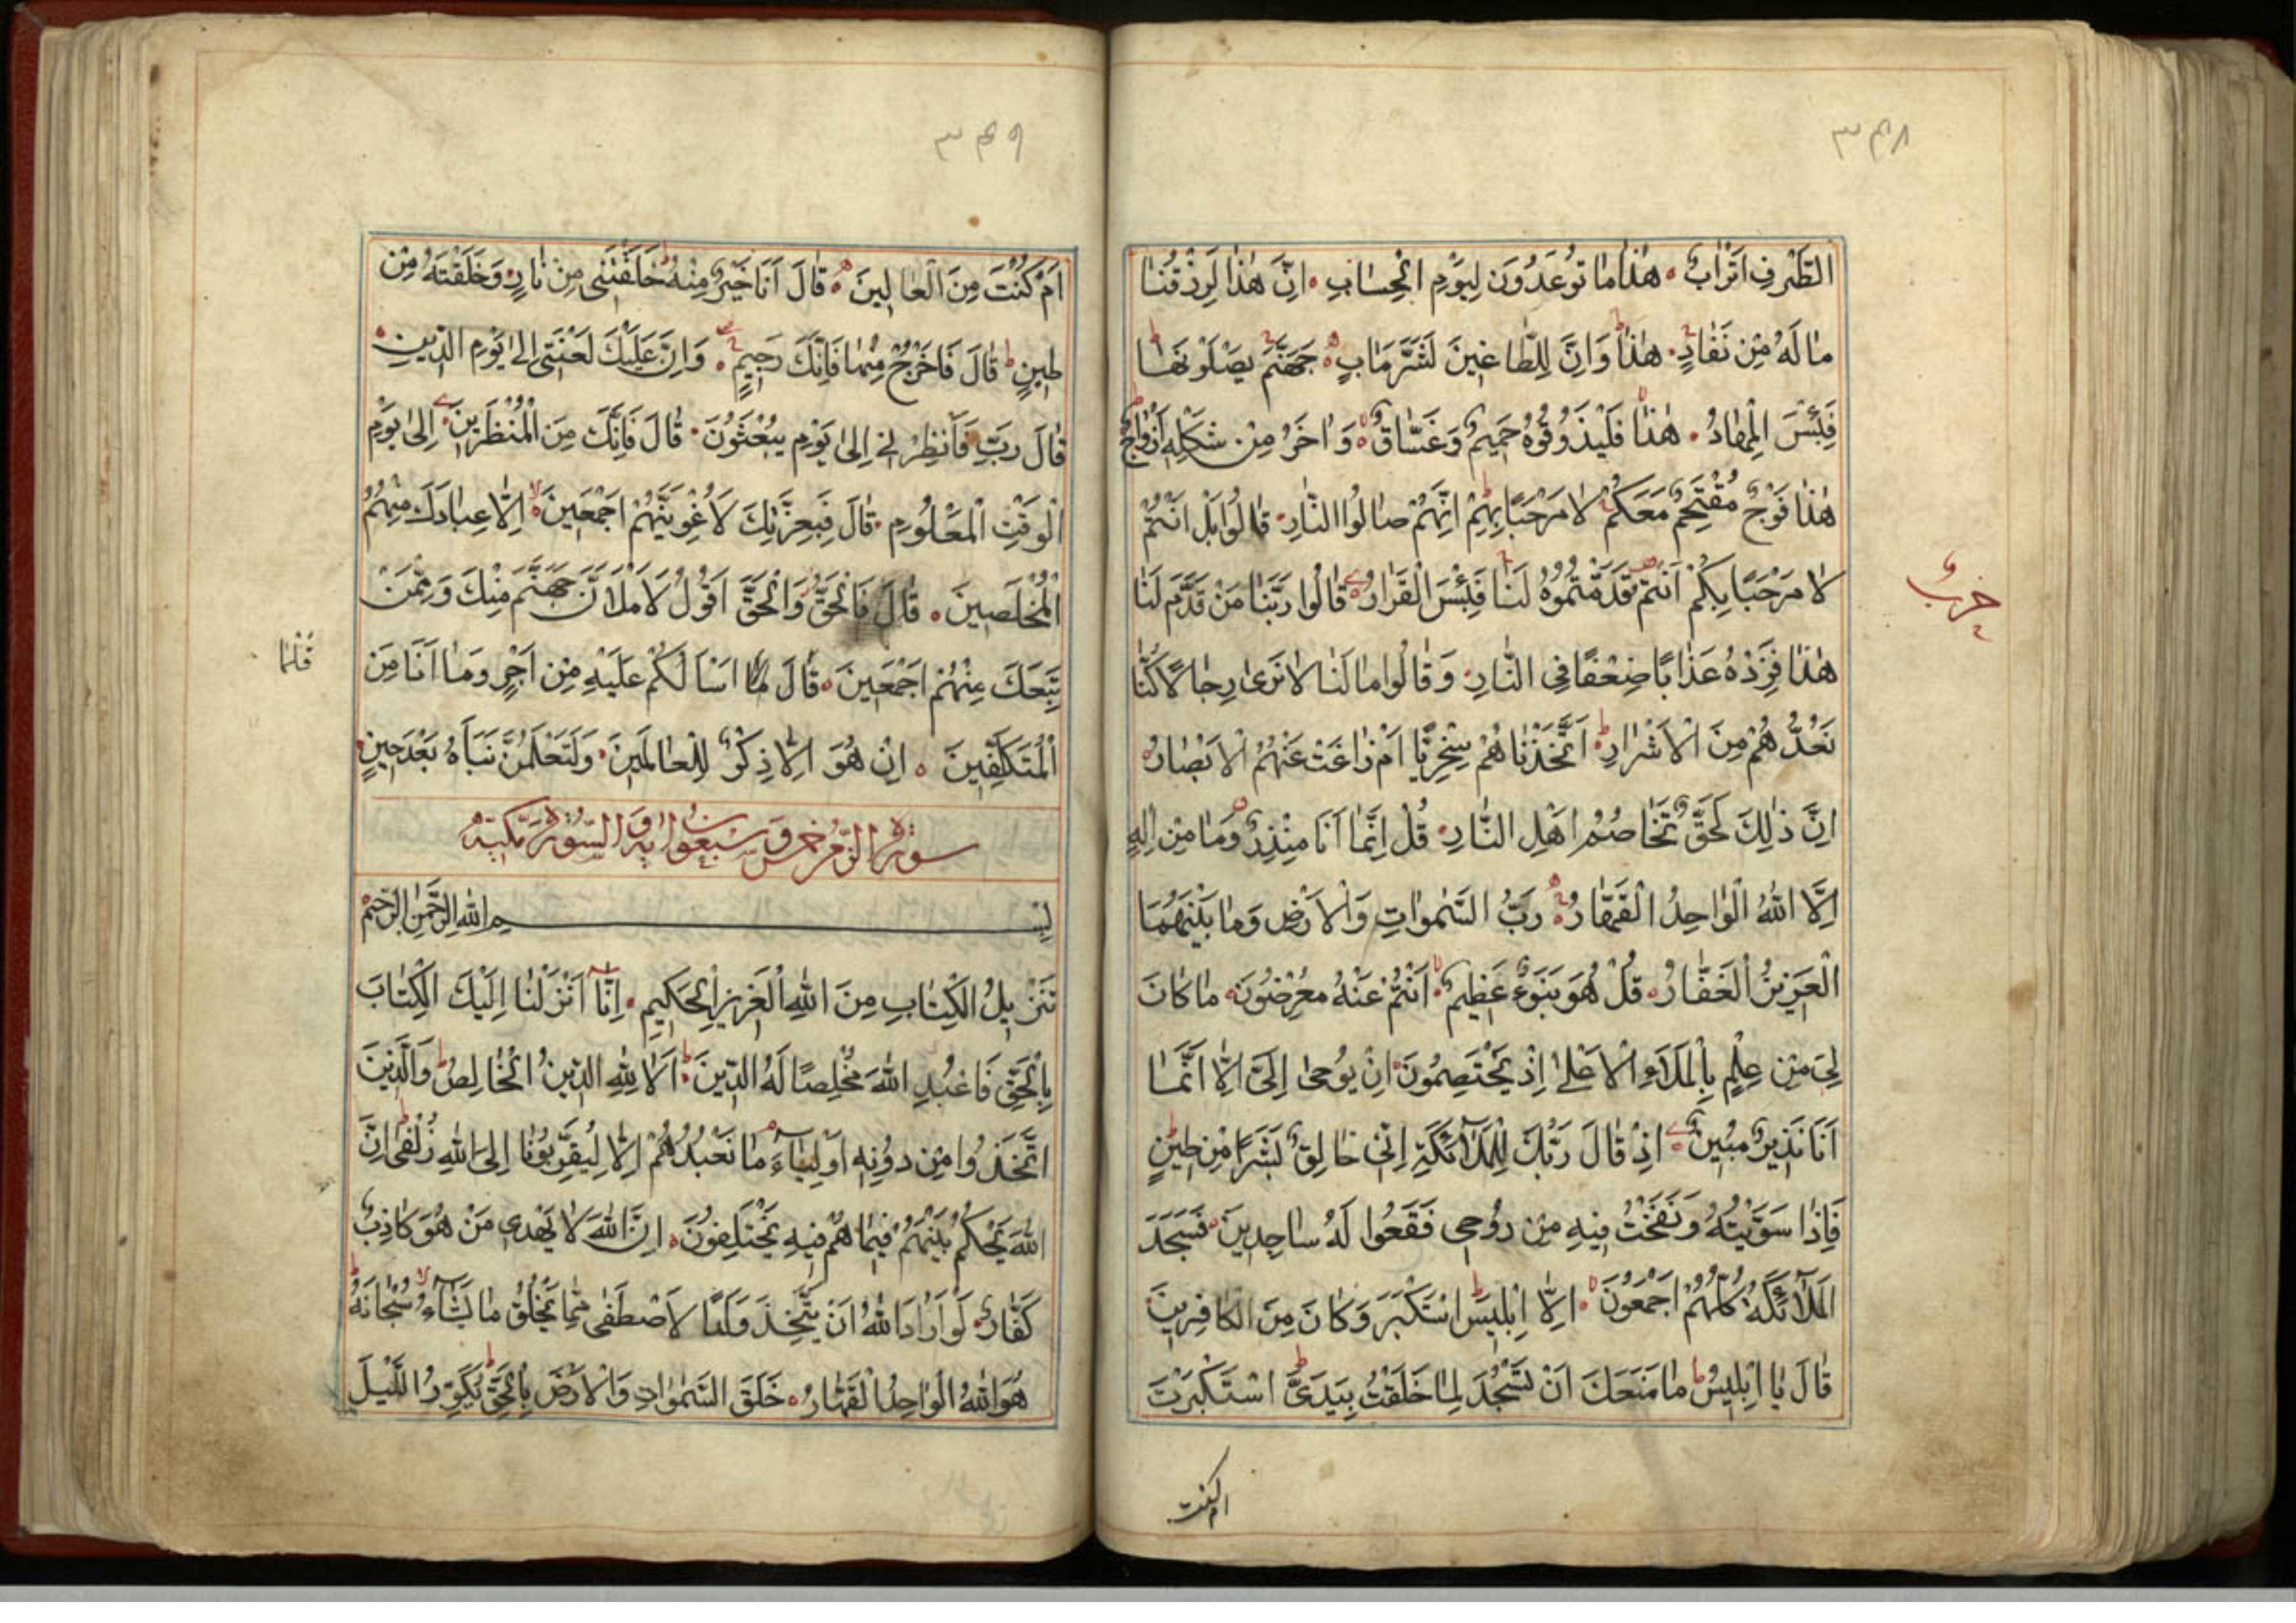 ۳۴۸
الطَّرْفِ اَتْرَابٌ هٰذَا مَا تُوعَدُونَ لِيَوْمِ الْحِسَابِ اِنَّ هٰذَا لَرِزْقُنَا
مَا لَهُ مِنْ نَفَادٍ هٰذَا وَاِنَّ لِلطَّاغِينَ لَشَرَّ مَاٰبٍ جَهَنَّمَ يَصْلَوْنَهَا
فَبِئْسَ الْمِهَادُ هٰذَا فَلْيَذُوقُوهُ حَمِيمٌ وَغَسَّاقٌ وَاٰخَرُ مِنْ شَكْلِهِ اَزْوَاجٌ
هٰذَا فَوْجٌ مُقْتَحِمٌ مَعَكُمْ لَا مَرْحَبًا بِهِمْ اِنَّهُمْ صَالُوا النَّارِ قَالُوا بَلْ اَنْتُمْ
لَا مَرْحَبًا بِكُمْ اَنْتُمْ قَدَّمْتُمُوهُ لَنَا فَبِئْسَ الْقَرَارُ قَالُوا رَبَّنَا مَنْ قَدَّمَ لَنَا
حزب
هٰذَا فَزِدْهُ عَذَابًا ضِعْفًا فِي النَّارِ وَقَالُوا مَا لَنَا لَا نَرٰى رِجَالًا كُنَّا
نَعُدُّهُمْ مِنَ الْاَشْرَارِ اَتَّخَذْنَاهُمْ سِخْرِيًّا اَمْ زَاغَتْ عَنْهُمُ الْاَبْصَارُ
اِنَّ ذٰلِكَ لَحَقٌّ تَخَاصُمُ اَهْلِ النَّارِ قُلْ اِنَّمَا اَنَا مُنْذِرٌ وَمَا مِنْ اِلٰهٍ
اِلَّا اللّٰهُ الْوَاحِدُ الْقَهَّارُ رَبُّ السَّمٰوَاتِ وَالْاَرْضِ وَمَا بَيْنَهُمَا
الْعَزِيزُ الْغَفَّارُ قُلْ هُوَ نَبَؤٌ عَظِيمٌ اَنْتُمْ عَنْهُ مُعْرِضُونَ مَا كَانَ
لِيَ مِنْ عِلْمٍ بِالْمَلَاِ الْاَعْلٰى اِذْ يَخْتَصِمُونَ اِنْ يُوحٰى اِلَيَّ اِلَّا اَنَّمَا
اَنَا نَذِيرٌ مُبِينٌ اِذْ قَالَ رَبُّكَ لِلْمَلٰٓائِكَةِ اِنِّي خَالِقٌ بَشَرًا مِنْ طِينٍ
فَاِذَا سَوَّيْتُهُ وَنَفَخْتُ فِيهِ مِنْ رُوحِي فَقَعُوا لَهُ سَاجِدِينَ فَسَجَدَ
الْمَلٰٓائِكَةُ كُلُّهُمْ اَجْمَعُونَ اِلَّا اِبْلِيسَ اسْتَكْبَرَ وَكَانَ مِنَ الْكَافِرِينَ
قَالَ يَا اِبْلِيسُ مَا مَنَعَكَ اَنْ تَسْجُدَ لِمَا خَلَقْتُ بِيَدَيَّ اسْتَكْبَرْتَ
ام كنت
۳۴۹
اَمْ كُنْتَ مِنَ الْعَالِينَ قَالَ اَنَا خَيْرٌ مِنْهُ خَلَقْتَنِي مِنْ نَارٍ وَخَلَقْتَهُ مِنْ
طِينٍ قَالَ فَاخْرُجْ مِنْهَا فَاِنَّكَ رَجِيمٌ وَاِنَّ عَلَيْكَ لَعْنَتِي اِلٰى يَوْمِ الدِّينِ
قَالَ رَبِّ فَاَنْظِرْنِي اِلٰى يَوْمِ يُبْعَثُونَ قَالَ فَاِنَّكَ مِنَ الْمُنْظَرِينَ اِلٰى يَوْمِ
الْوَقْتِ الْمَعْلُومِ قَالَ فَبِعِزَّتِكَ لَاُغْوِيَنَّهُمْ اَجْمَعِينَ اِلَّا عِبَادَكَ مِنْهُمُ
الْمُخْلَصِينَ قَالَ فَالْحَقُّ وَالْحَقَّ اَقُولُ لَاَمْلَاَنَّ جَهَنَّمَ مِنْكَ وَمِمَّنْ
تَبِعَكَ مِنْهُمْ اَجْمَعِينَ قَالَ مَا اَسْاَلُكُمْ عَلَيْهِ مِنْ اَجْرٍ وَمَا اَنَا مِنَ
الْمُتَكَلِّفِينَ اِنْ هُوَ اِلَّا ذِكْرٌ لِلْعَالَمِينَ وَلَتَعْلَمُنَّ نَبَاَهُ بَعْدَ حِينٍ
سورة الزمر خمس وسبعون اية والسورة مكية
بِسْمِ اللّٰهِ الرَّحْمٰنِ الرَّحِيمِ
تَنْزِيلُ الْكِتَابِ مِنَ اللّٰهِ الْعَزِيزِ الْحَكِيمِ اِنَّا اَنْزَلْنَا اِلَيْكَ الْكِتَابَ
بِالْحَقِّ فَاعْبُدِ اللّٰهَ مُخْلِصًا لَهُ الدِّينَ اَلَا لِلّٰهِ الدِّينُ الْخَالِصُ وَالَّذِينَ
اتَّخَذُوا مِنْ دُونِهِ اَوْلِيَاءَ مَا نَعْبُدُهُمْ اِلَّا لِيُقَرِّبُونَا اِلَى اللّٰهِ زُلْفٰى اِنَّ
اللّٰهَ يَحْكُمُ بَيْنَهُمْ فِيمَا هُمْ فِيهِ يَخْتَلِفُونَ اِنَّ اللّٰهَ لَا يَهْدِي مَنْ هُوَ كَاذِبٌ
كَفَّارٌ لَوْ اَرَادَ اللّٰهُ اَنْ يَتَّخِذَ وَلَدًا لَاصْطَفٰى مِمَّا يَخْلُقُ مَا يَشَاءُ سُبْحَانَهُ
هُوَ اللّٰهُ الْوَاحِدُ الْقَهَّارُ خَلَقَ السَّمٰوَاتِ وَالْاَرْضَ بِالْحَقِّ يُكَوِّرُ اللَّيْلَ